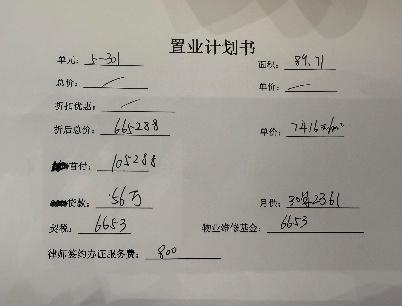 置业计划书
单元: 5-301 面积: 89.71
总价: 单价:
折扣优惠:
折后总价: 665288 单价: 7416元/m²
首付: 105288
贷款: 56万 月供: 30年2361
契税: 6653 物业维修基金: 6653
律师签约办证服务费: 800